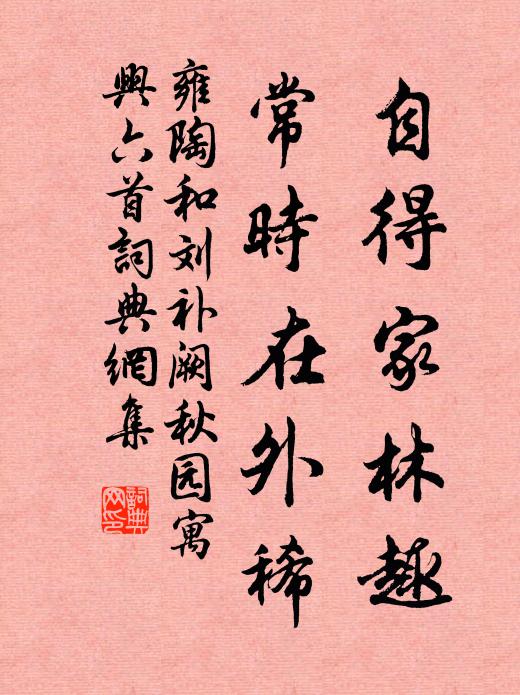 自得家林趣
常時在外稀
雍陶和刘补阙秋园寓
興六首詞典網集
詞典
网印